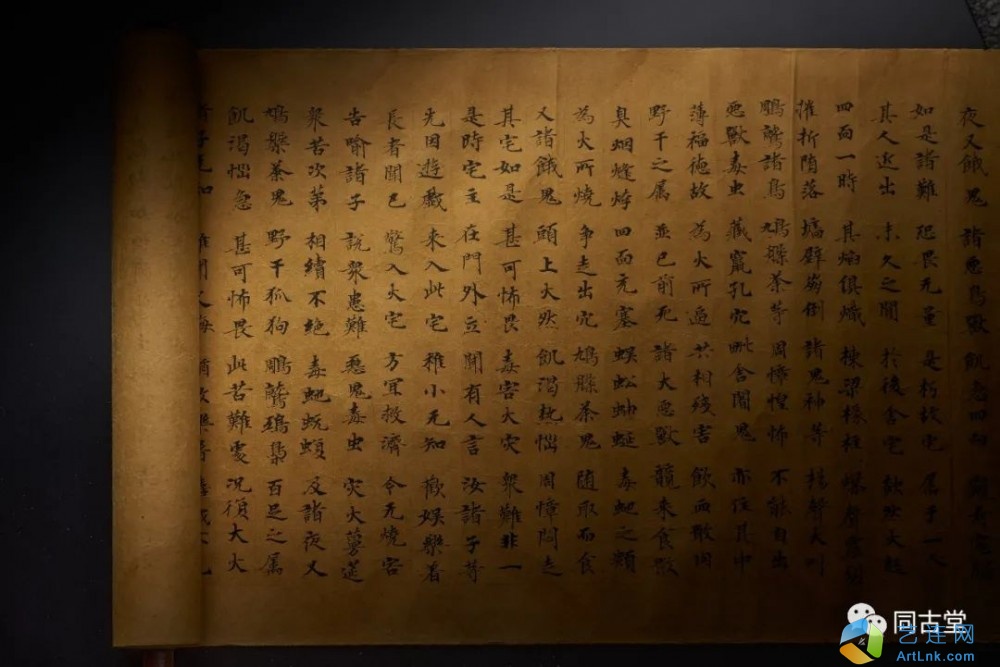 夜叉餓鬼 諸惡鳥獸 飢急四向
如是諸難 恐畏无量 是朽故宅 屬于一人
其人近出 未久之間 於後舍宅 欻然火起
四面一時 其焰俱熾 棟梁椽柱 爆聲震裂
摧折墮落 墻壁崩倒 諸鬼神等 揚聲大叫
鵰鷲諸鳥 鳩槃荼等 周慞惶怖 不能自出
惡獸毒虫 藏竄孔穴 毗舍闍鬼 亦住其中
薄福德故 為火所逼 共相殘害 飲血噉肉
野干之屬 並已前死 諸大惡獸 競來食噉
臭烟熢㶿 四面充塞 蜈蚣蚰蜒 毒虵之類
為火所燒 爭走出穴 鳩槃荼鬼 随取而食
又諸餓鬼 頭上火然 飢渴熱惱 周慞悶走
其宅如是 甚可怖畏 毒害火灾 衆難非一
是時宅主 在門外立 聞有人言 汝諸子等
先因遊戲 來入此宅 稚小无知 歡娛樂著
長者聞已 驚入火宅 方宜救濟 令无燒害
告喻諸子 說衆患難 惡鬼毒虫 灾火蔓莚
衆苦次第 相續不絕 毒虵蚖蝮 及諸夜叉
鳩槃荼鬼 野干狐狗 鵰鷲鵄梟 百足之属
飢渴惱急 甚可怖畏 此苦難處 況復大火
同古堂
艺连网
ArtLnk.com